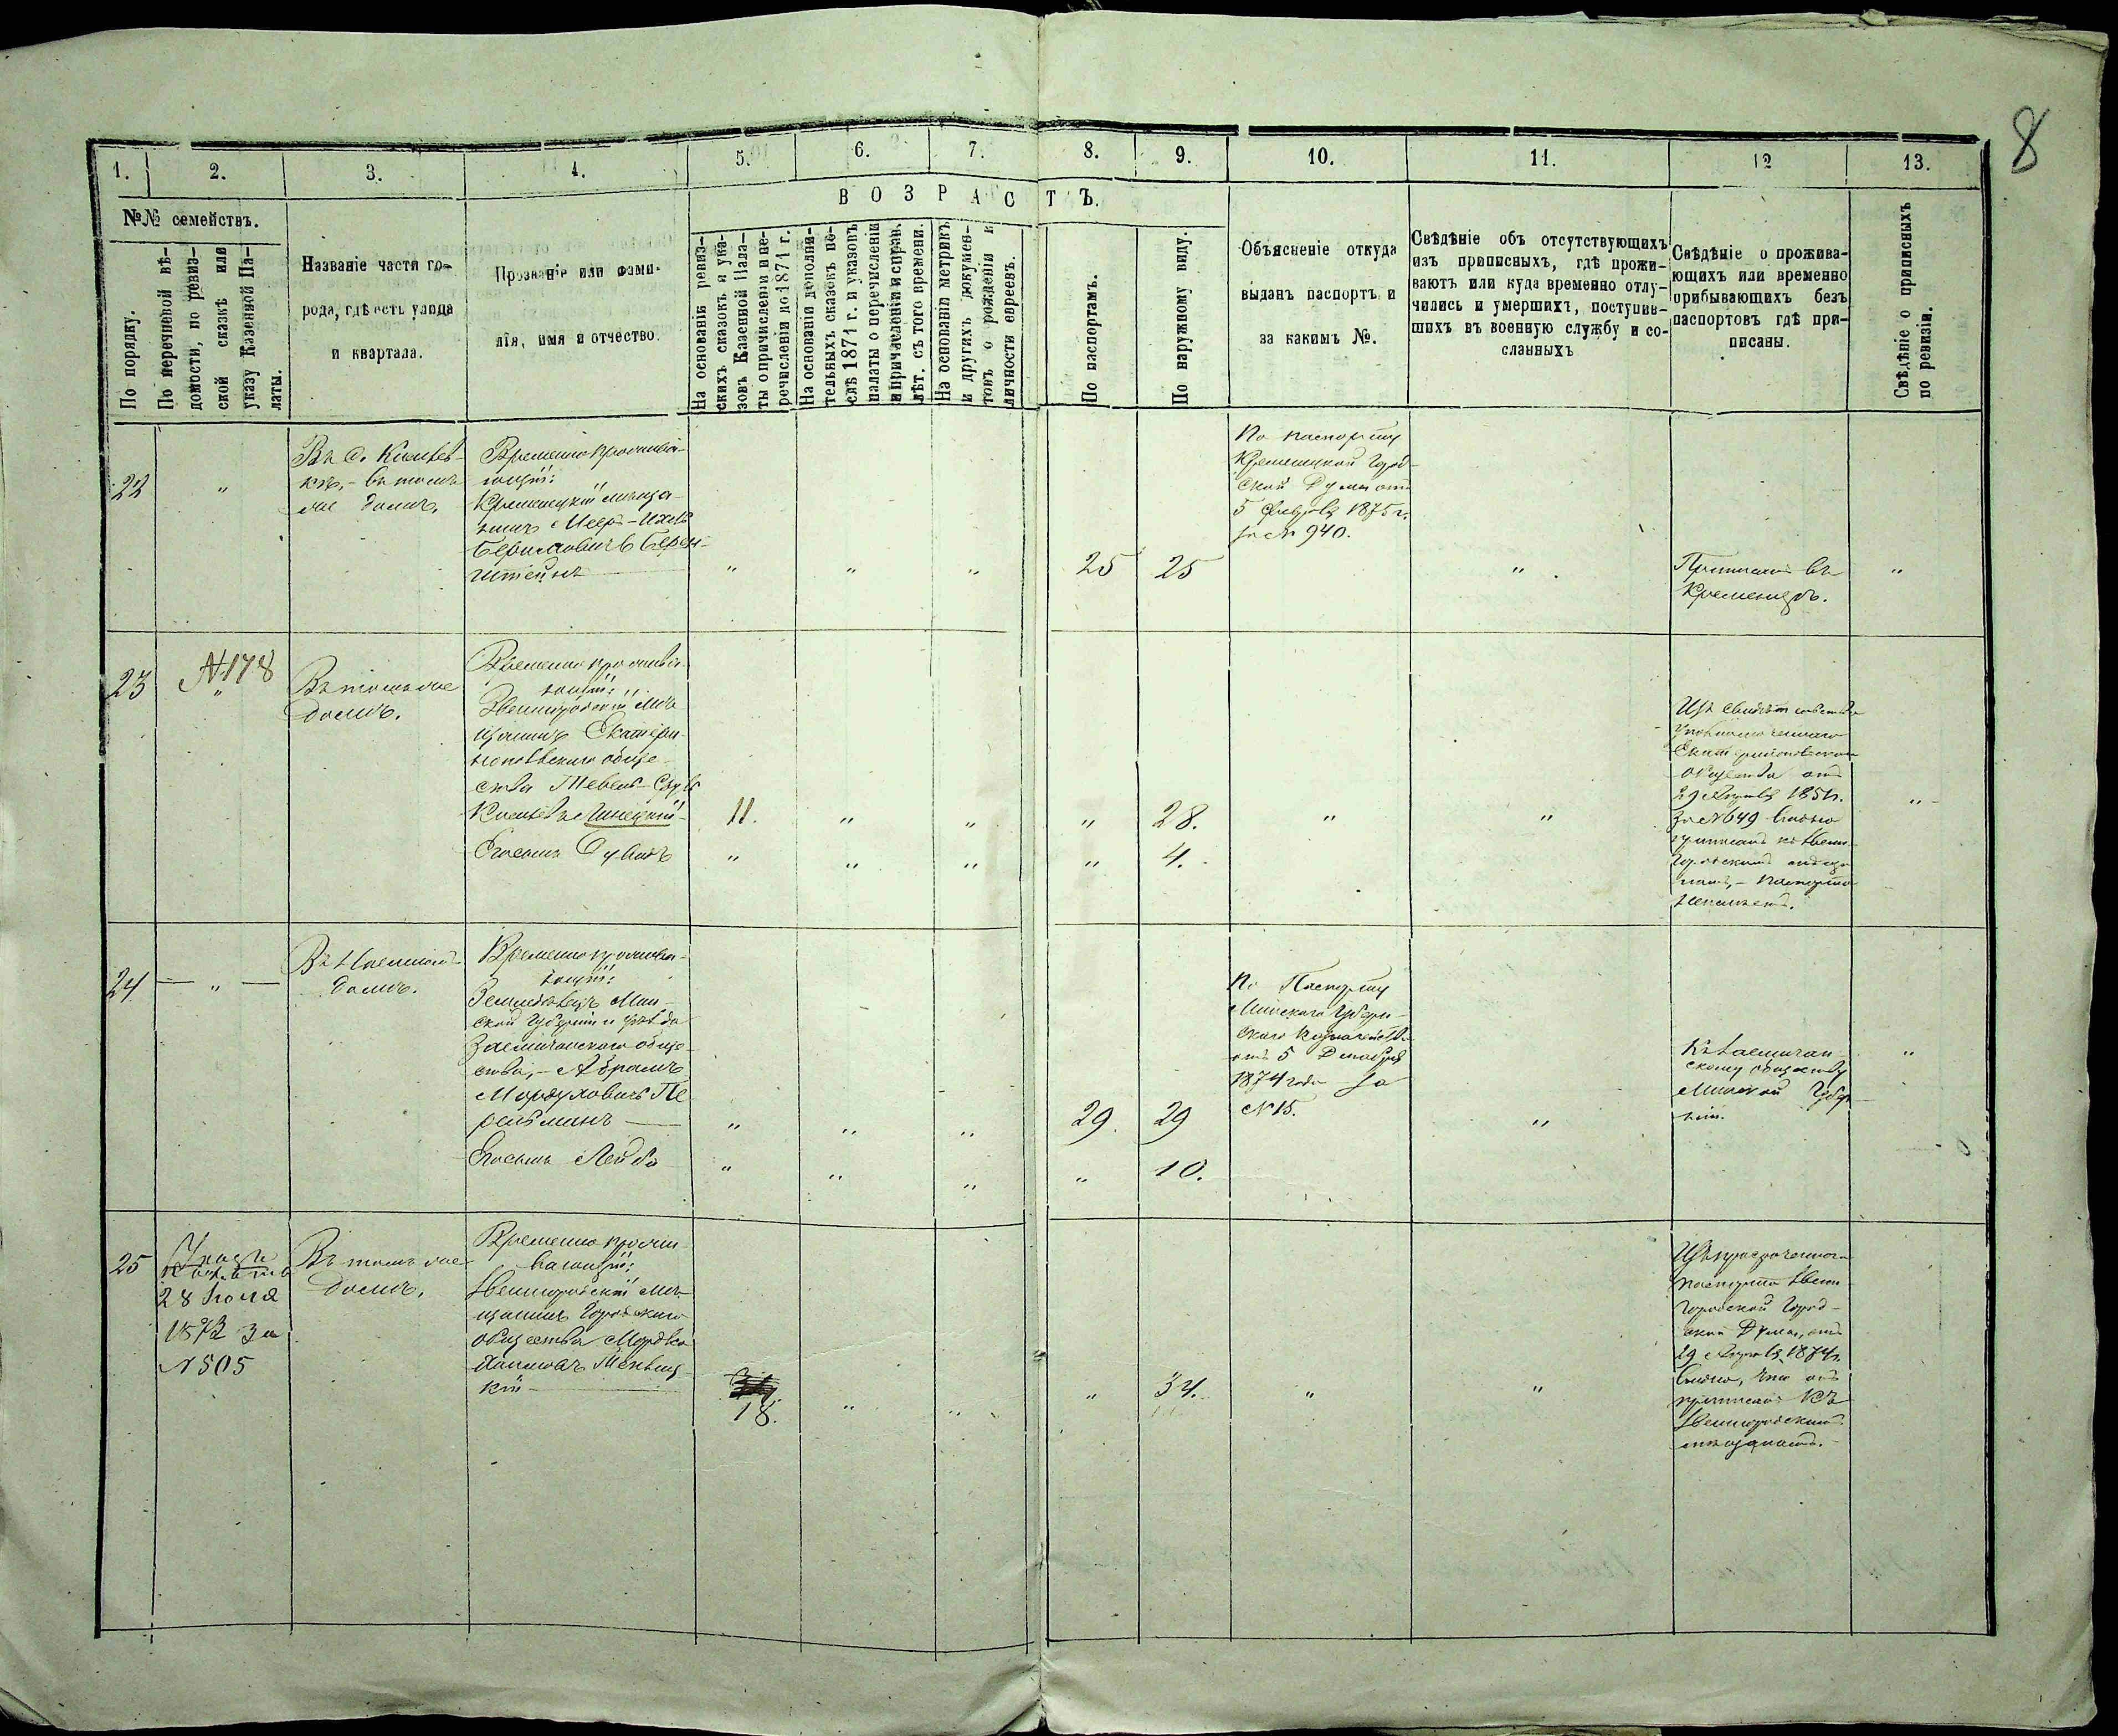 8
1.
2.
3.
4.
5.
6.
7.
8.
9.
10.
11.
12
13.
№№ семействъ.
По порядку.
По перечневой вѣ-
домости, по ревиз-
ской сказкѣ или
указу Казенной Па-
латы.
Названіе части го-
рода, гдѣ есть улица
и квартала.
Прозваніе или фами-
лія, имя и отчество.
ВОЗРАСТЪ.
На основаніи ревиз-
скихъ сказокъ и ука-
зовъ Казенной Пала-
ты о причисленіи и пе-
речисленіи до 1871 г.
На основаніи дополни-
тельныхъ сказокъ по-
слѣ 1871 г. и указовъ
палаты о перечисленіи
и причисленіи и справ.
лѣт. съ того времени.
На основаніи метрикъ
и другихъ докумен-
товъ о рожденіи и
личности евреевъ.
По паспортамъ.
По наружному виду.
Объясненіе откуда
выданъ паспортъ и
за какимъ №.
Свѣдѣніе объ отсутствующихъ
изъ приписныхъ, гдѣ прожи-
ваютъ или куда временно отлу-
чились и умершихъ, поступив-
шихъ въ военную службу и со-
сланныхъ
Свѣдѣніе о прожива-
ющихъ или временно
прибывающихъ безъ
паспортовъ гдѣ при-
писаны.
Свѣдѣніе о приписныхъ
по ревизіи.
22
"
Въ с.
въ томъ
же домѣ,
Временно прожива-
ющій:
Кременецкій мѣща-
нинъ Мееръ-Ицко
Берковичъ Берен-
штейнъ
"
"
"
25
25
По паспорту
Кременецкой Город-
ской Думы отъ
5 Февраля 1875 г.
за № 940.
"
Приписанъ въ
Кременецъ.
"
23
№178
"
Въ томъ же
домѣ.
Временно прожива-
ющій:
Звенигородскій мѣ-
щанинъ Екатери-
нопольскаго обще-
ства Тевель-Сруль
Линецкій
11.
"
"
"
28.
"
"
Его сынъ Дувидъ
"
"
"
"
4.
Изъ свидѣтельства
Екатеринопольскаго
общества отъ
29 1851 г.
за № 649 видно
приписанъ къ Звени-
городскимъ мѣща-
намъ, – паспорта
неимѣетъ.
"
24
"
Въ
домѣ.
Временно прожива-
ющій:
Земледѣлецъ Мин-
ской Губерніи и уѣзда
обще-
ства, – Абрамъ
Мордуховичъ Пе
рельманъ
"
"
"
29.
29
Его сынъ Лейба
"
"
"
"
10.
По Паспорту
Минскаго Губерн-
скаго Казначейства
отъ 5 Декабря
1874 года за
№ 15.
"
скому обществу
Минской Губер-
ніи.
"
25
Указъ
28 Іюля
1872 за
№ 505
Въ томъ же
домѣ,
Временно прожи-
вающій:
Звенигородскій мѣ-
щанинъ Городскаго
общества Мордко
кій
18.
"
"
"
34.
"
"
Изъ просроченнаго
паспорта Звени-
городской Город-
ской Думы, отъ
29 1874 г.
видно, что онъ
приписанъ къ
Звенигородскимъ
мѣщанамъ.